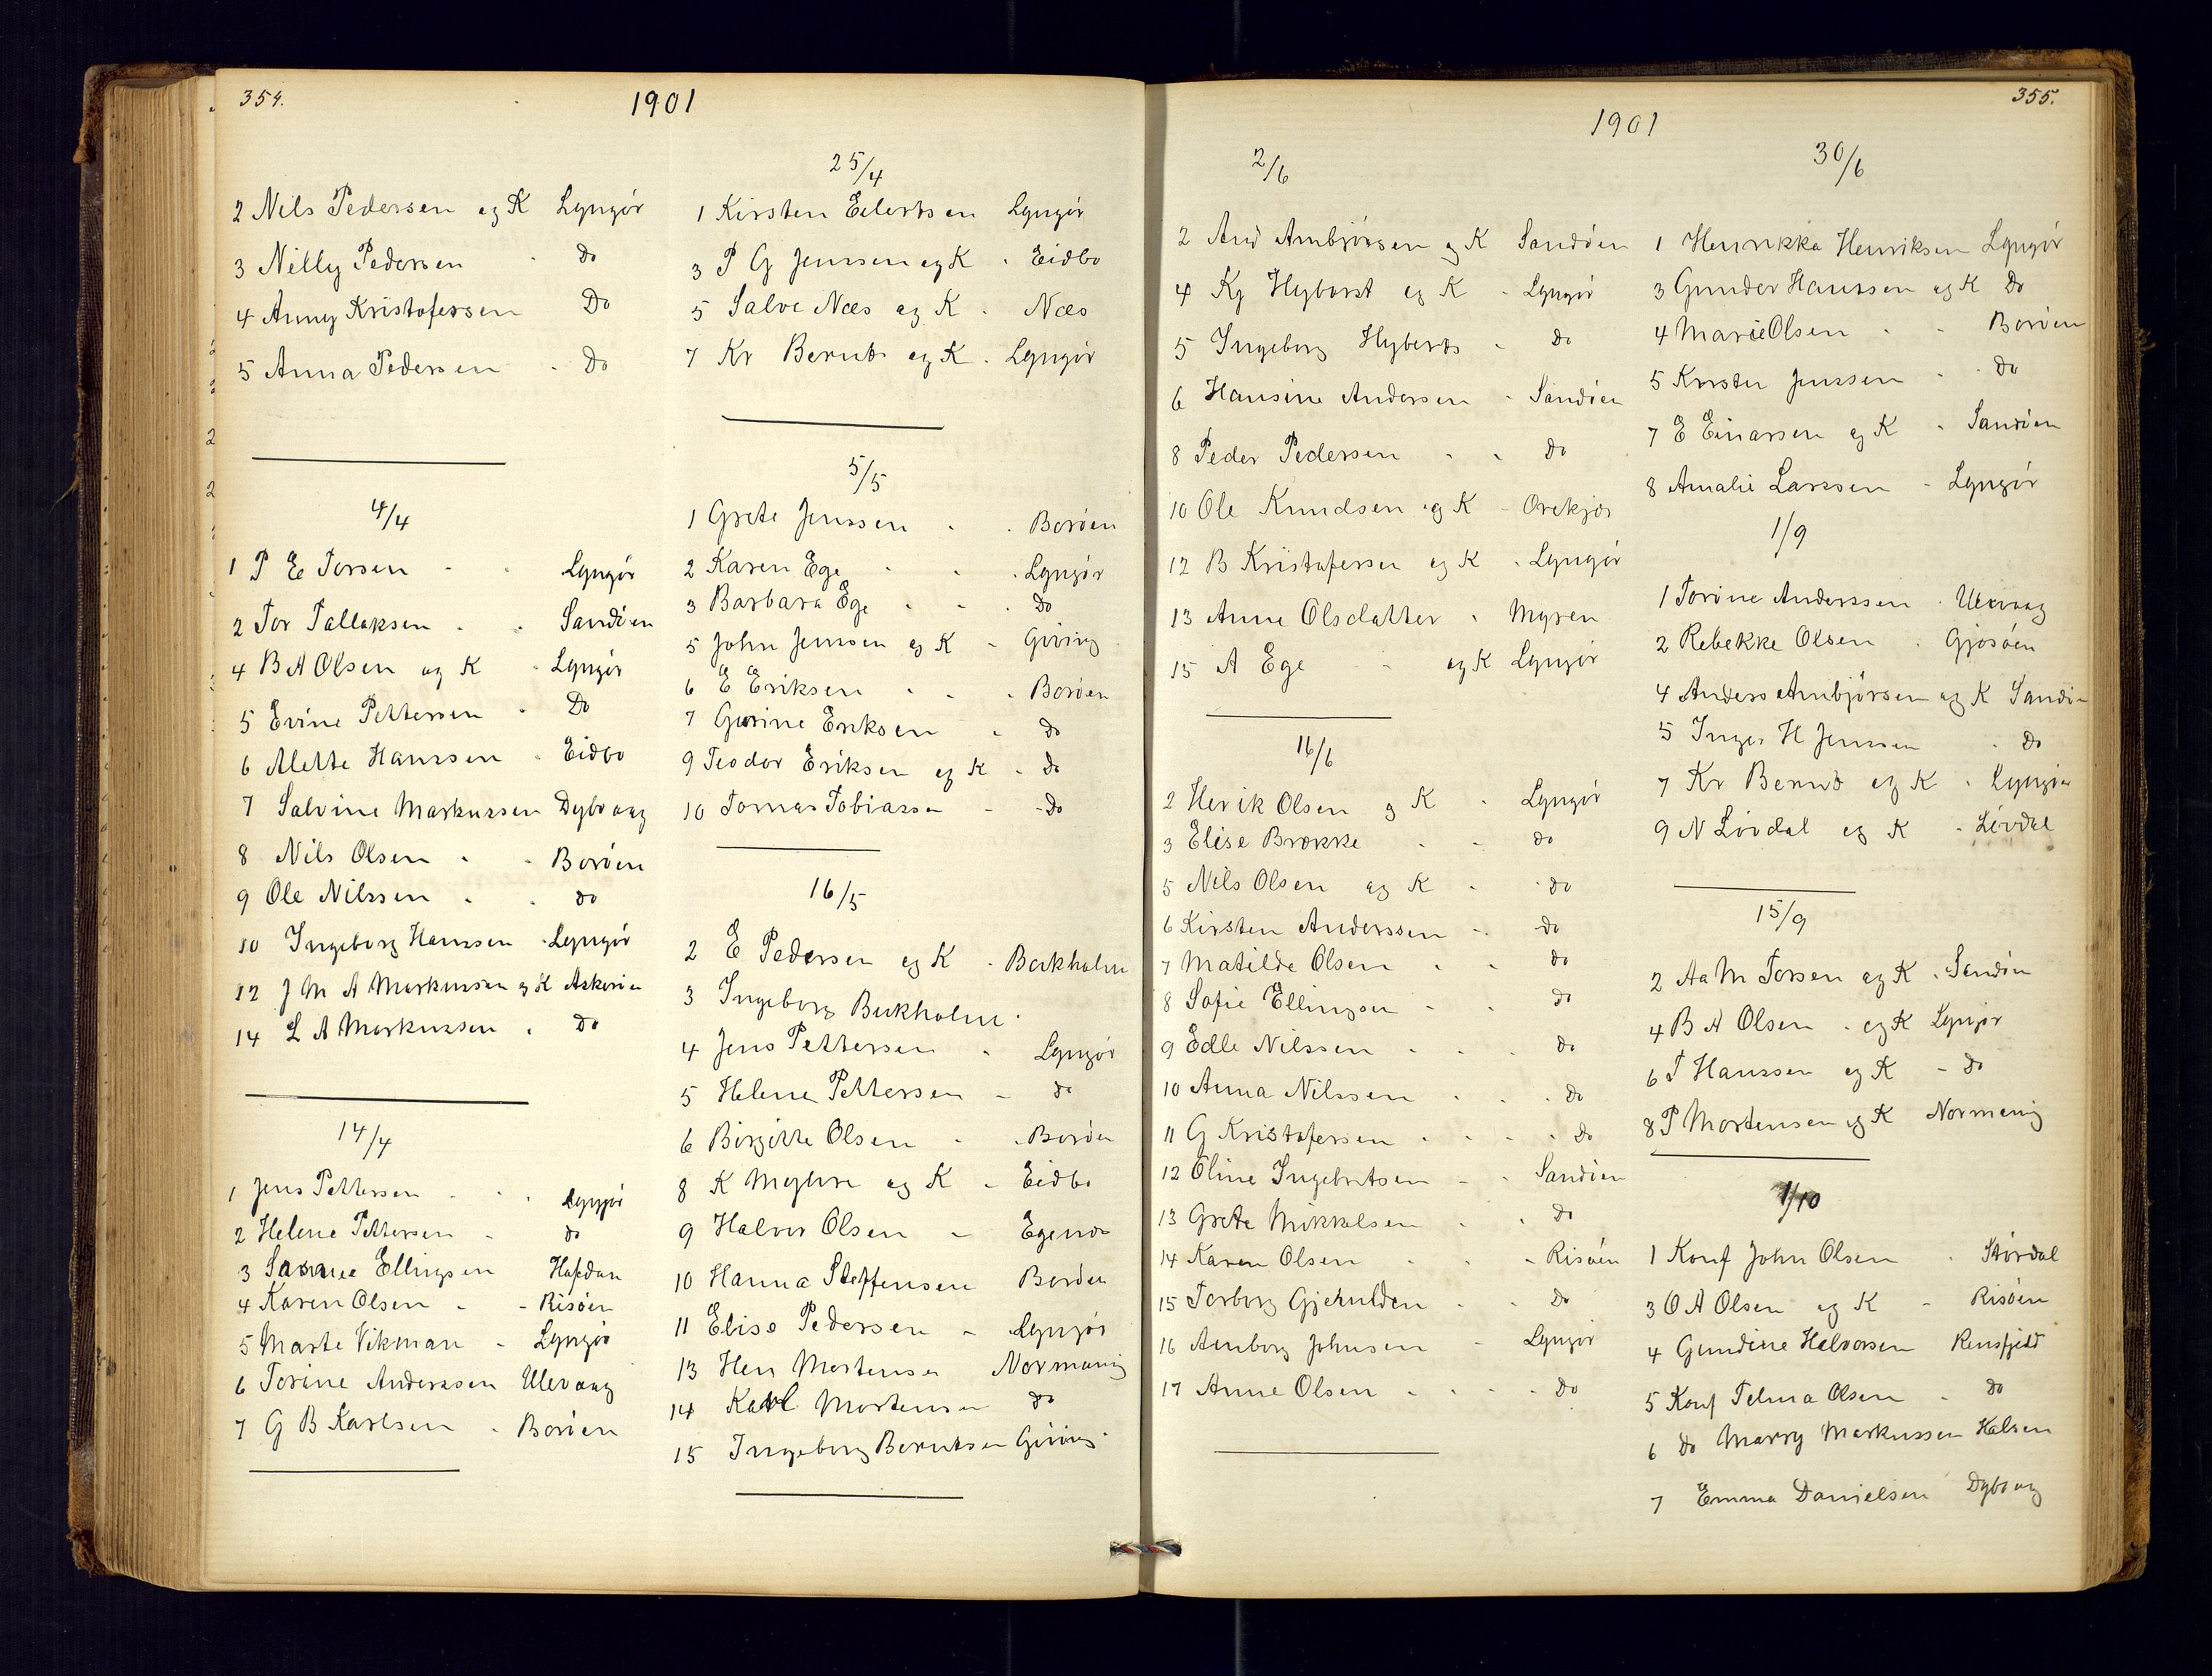 354.
1901
2 Nils Pedersen og K Lyngör
3 Nelly Pedersen - Do
4 Anny Kristofersen Do
5 Anna Pedersen - Do
4/4
1 P E Torsen - - Lyngör
2 Tor Tallaksen - - Sandöen
4 B A Olsen og K - Lyngör
5 Evine Pettersen - Do
6 Alette Hanssen - Eidbo
7 Salvine Markussen Dybvaag
8 Nils Olsen - - Boröen
9 Ole Nilssen - - do
10 Ingeborg Hanssen - Lyngör
12 J M A Markussen og K Askeröen
14 L A Markussen - Do
14/4
1 Jens Pettersen - - - Lyngör
2 Helene Pettersen - do
3 Ellingsen
4 Karen Olsen - - Risöen
5 Marte Vikman - Lyngör
6 Torine Anderssen Ulevaag
7 G B Karlsen - Boröen
25/4
1 Kirsten Eilertsen Lyngör
3 P G Jenssen og K - Eidbo
5 Salve Næs og K - Næs
7 Kr Bernts og K - Lyngör
5/5
1 Grete Jenssen - - Boröen
2 Karen Ege - - - Lyngör
3 Barbara Ege - - - Do
5 John Jenssen og K - Giving
6 E Eriksen - - - Boröen
7 Gurine Eriksen - do
9 Teodor Eriksen og K - do
10 Tomas Tobiassen - - Do
16/5
2 E Pedersen og K - Berkholm
3 Ingeborg Berkholm -
4 Jens Pettersen - Lyngör
5 Helene Pettersen - do
6 Birgitte Olsen - - Boröen
8 K Myhre og K - Eidbo
9 Halvor Olsen - Egenæs
10 Hanna Steffensen Boröen
11 Elise Pedersen - Lyngör
13 Hen Mortensen Normanvig
14 Karl Mortensen do
15 Ingeborg Berntsen Giving
355.
1901
2/6
2 And Arnbjörsen og K Sandöen
4 Kg Hybarst og K - Lyngör
5 Ingeborg Hyberts - do
6 Hansine Andersen - Sandöen
8 Peder Pedersen - - Do
10 Ole Knudsen og K - Orekjær
12 B Kristofersen og K - Lyngör
13 Anne Olsdatter - Myren
15 A Ege - og K Lyngör
16/6
2 Henrik Olsen og K - Lyngör
3 Elise Brække - - do
5 Nils Olsen og K - - do
6 Kirsten Anderssen - - do
7 Matilde Olsen - - do
8 Sofie Ellingsen - - do
9 Edle Nilssen - - - do
10 Anna Nilssen - - - do
11 G Kristofersen - - - - do
12 Oline Ingebretsen - - Sandöen
13 Grete Mikkelsen - - do
14 Karen Olsen - - - Risöen
15 Torborg Gjerulden - - Do
16 Arnborg Johnsen - Lyngör
17 Anne Olsen - - - - Do
30/6
1 Henrikka Henriksen Lyngör
3 Gunder Hanssen og K Do
4 Marie Olsen - - Boröen
5 Kirsten Jenssen - - do
7 E Einarssen og K - Sandöen
8 Amalie Larssen - Lyngör
1/9
1 Torine Anderssen - Ulevaag
2 Rebekke Olsen - Gjösöen
4 Anders Arnbjörsen og K Sandöen
5 Inger H Jenssen - do
7 Kr Bernts og K - Lyngör
9 N Lövdal og K - Lövdal
15/9
2 Aa M Torsen og K - Sandöen
4 B A Olsen - og K Lyngör
6 T Hanssen og K - do
8 P Mortensen og K Normanvig
1/10
1 Konf John Olsen - Stördal
3 O A Olsen og K - Risöen
4 Gundine Halvorsen Rensfjeld
5 Konf Telma Olsen - do
6 do Marry Markussen Halsen
7 Emma Danielsen Dybvaag